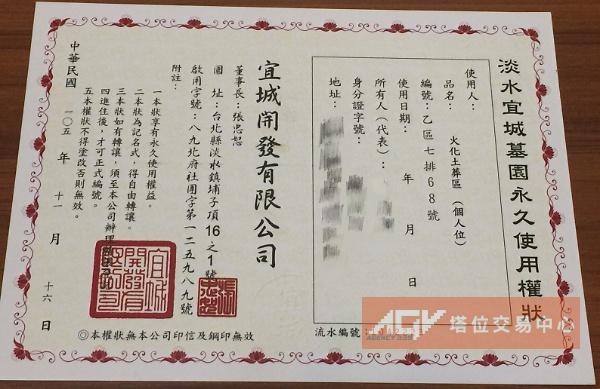 淡水宜城墓園永久使用權狀
使用人：
品名：火化土葬區（個人位）
編號：乙區七排68號
使用日期：　年　月　日
所有人（代表）：
身分證字號：
地址：
流水編號：
宜城開發有限公司
董事長：張忠恕
園　址：台北縣淡水鎮埔子頂16之1號
啟用字號：八九北府社園字第一二五九八九號
附註：
一本狀享有永久使用權益。
二本狀為記名式，得自由轉讓。
三本狀如有轉讓，須至本公司辦理
四進住後，才可正式編號。
五本權狀不得塗改否則無效。
中華民國　一〇五　年　十一　月　十六　日
宜城開發有
◎本權狀無本公司印信及鋼印無效
AGV 塔位交易中心